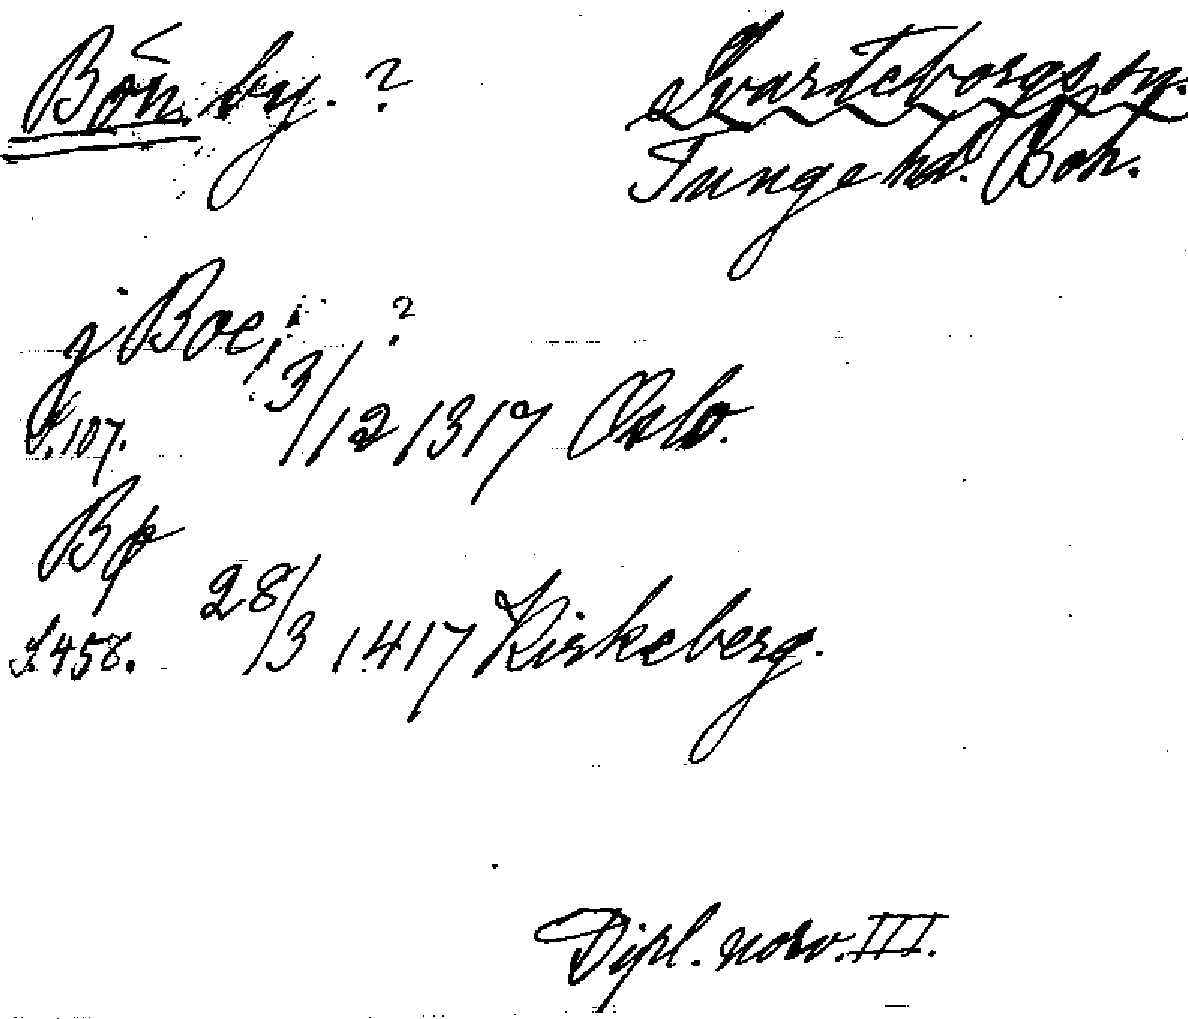 Bön. by. ?
Svarteborgs sn.
Tunge hd. Boh.
j Boe, ?
S. 107. 13/12 1317 Oslo.
Bø
S. 458. 28/3 1417 Kirkeberg.
Dipl. norv. III.